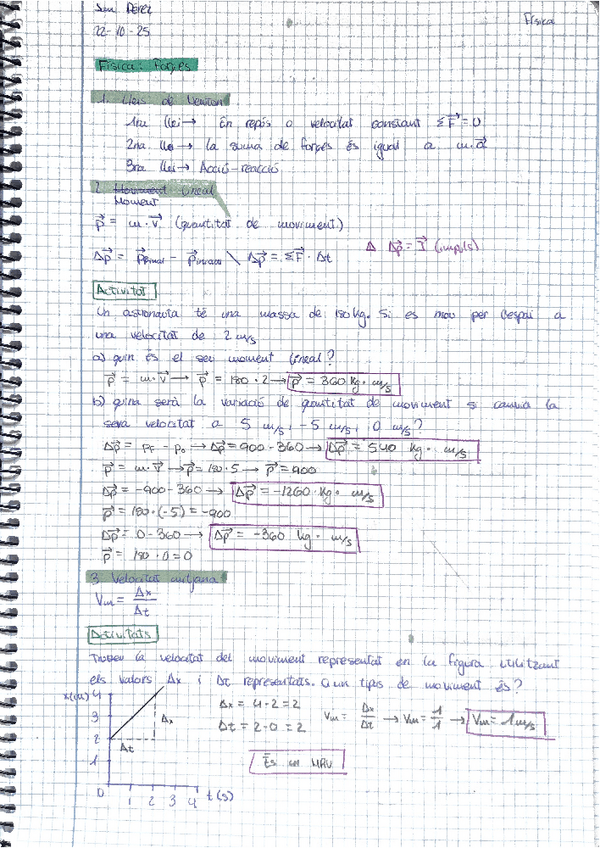 Pérez
Física
22-10-25
Física: Forçes
1. Lleis de Newton
1ra llei → En repós o velocitat constant ΣF⃗ = 0
2na llei → la suma de forçes és igual a m·a⃗
3ra llei → Acció-reacció
2. Moviment Lineal
Moment
p⃗ = m·v⃗ (quantitat de moviment)
Δp⃗ = p⃗final - p⃗inicial \ Δp⃗ = ΣF⃗ · Δt
Δ Δp⃗ = I⃗ (impuls)
Activitat
Un astronauta té una massa de 180 kg. Si es mou per l'espai a
una velocitat de 2 m/s
a) quin és el seu moment lineal?
p⃗ = m·v⃗ → p⃗ = 180 · 2 → p⃗ = 360 kg · m/s
b) quina serà la variació de quantitat de moviment si canvia la
seva velocitat a 5 m/s, -5 m/s, 0 m/s?
Δp⃗ = pF - p0 → Δp⃗ = 900 - 360 → Δp⃗ = 540 kg · m/s
p⃗ = m·v⃗ → p⃗ = 180 · 5 → p⃗ = 900
Δp⃗ = -900 - 360 → Δp⃗ = -1260 kg · m/s
p⃗ = 180 · (-5) = -900
Δp⃗ = 0 - 360 → Δp⃗ = -360 kg · m/s
p⃗ = 180 · 0 = 0
3. Velocitat mitjana
Vm = Δx/Δt
Activitats
Trobeu la velocitat del moviment representat en la figura utilitzant
els valors Δx i Δt representats. Quin tipus de moviment és?
x(m)
4
3
2
1
0
1 2 3 4 t(s)
Δx
Δt
Δx = 4-2 = 2
Δt = 2-0 = 2
Vm = Δx/Δt → Vm = 1/1 → Vm = 1 m/s
És un MRU